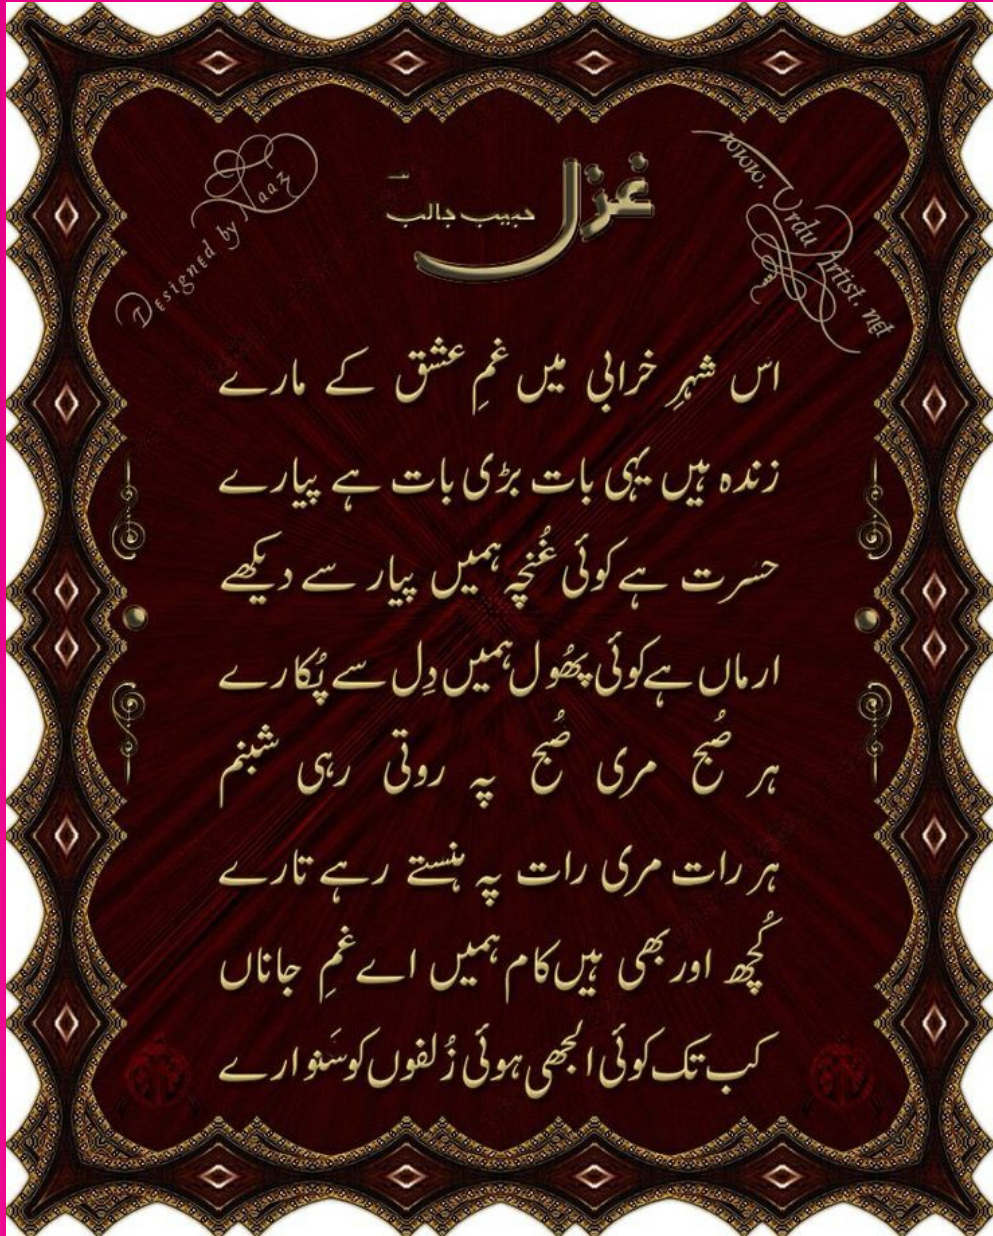 غزل
حبیب جالب
Designed by Naaz
www.UrduArtist.net
اس شہرِ خرابی میں غمِ عشق کے مارے
زندہ ہیں یہی بات بڑی بات ہے پیارے
حسرت ہے کوئی غُنچہ ہمیں پیار سے دیکھے
ارماں ہے کوئی پھُول ہمیں دِل سے پُکارے
ہر صُبح مری صُبح پہ روتی رہی شبنم
ہر رات مری رات پہ ہنستے رہے تارے
کُچھ اور بھی ہیں کام ہمیں اے غمِ جاناں
کب تک کوئی الجھی ہوئی زُلفوں کو سَنوارے